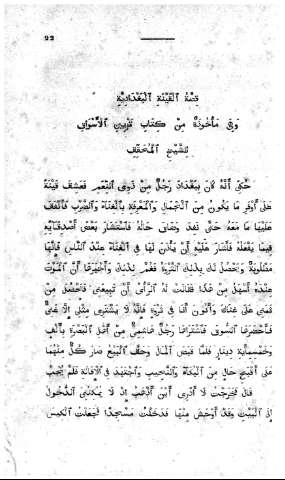 22
قصة القينة البغدادية
وهى مأخوذة من كتاب تزيين الأسواق
للشيخ المحقق
حكى أنه كان ببغداد رجل من ذوى النعم فعشق قينة
على أوفر ما يكون من الجمال والمعرفة بالغناء والضرب فأنفق
عليها ما معه حتى نفد وضاق حاله فاستشار بعض أصدقائه
فيما يفعله فأشار عليه أن يأذن لها فى الغناء عند الناس فإنها
ويحصل لك بذلك الثروة لذلك وأخبرها أن الموت
عنده أسهل من هذا فقالت له الرأى أن تبيعنى فأحصل من
ثمنى على غناك وأكون أنا فى ثروة فإنه لا يشترى مثلى إلا غنى
فأحضرها السوق فاشتراها رجل هاشمى من أهل البصرة بألف
وخمسماية دينار فلما قبض المال وحقق البيع صار كل منهما
على أقبح حال من البكاء والنحيب واجتهد فى الإقالة فلم يجب
قال فخرجت لا أدرى أين أذهب إذ لا يمكننى الدخول
إلى البيت وقد أوحش منها فدخلت مسجدا فجعلت الكيس